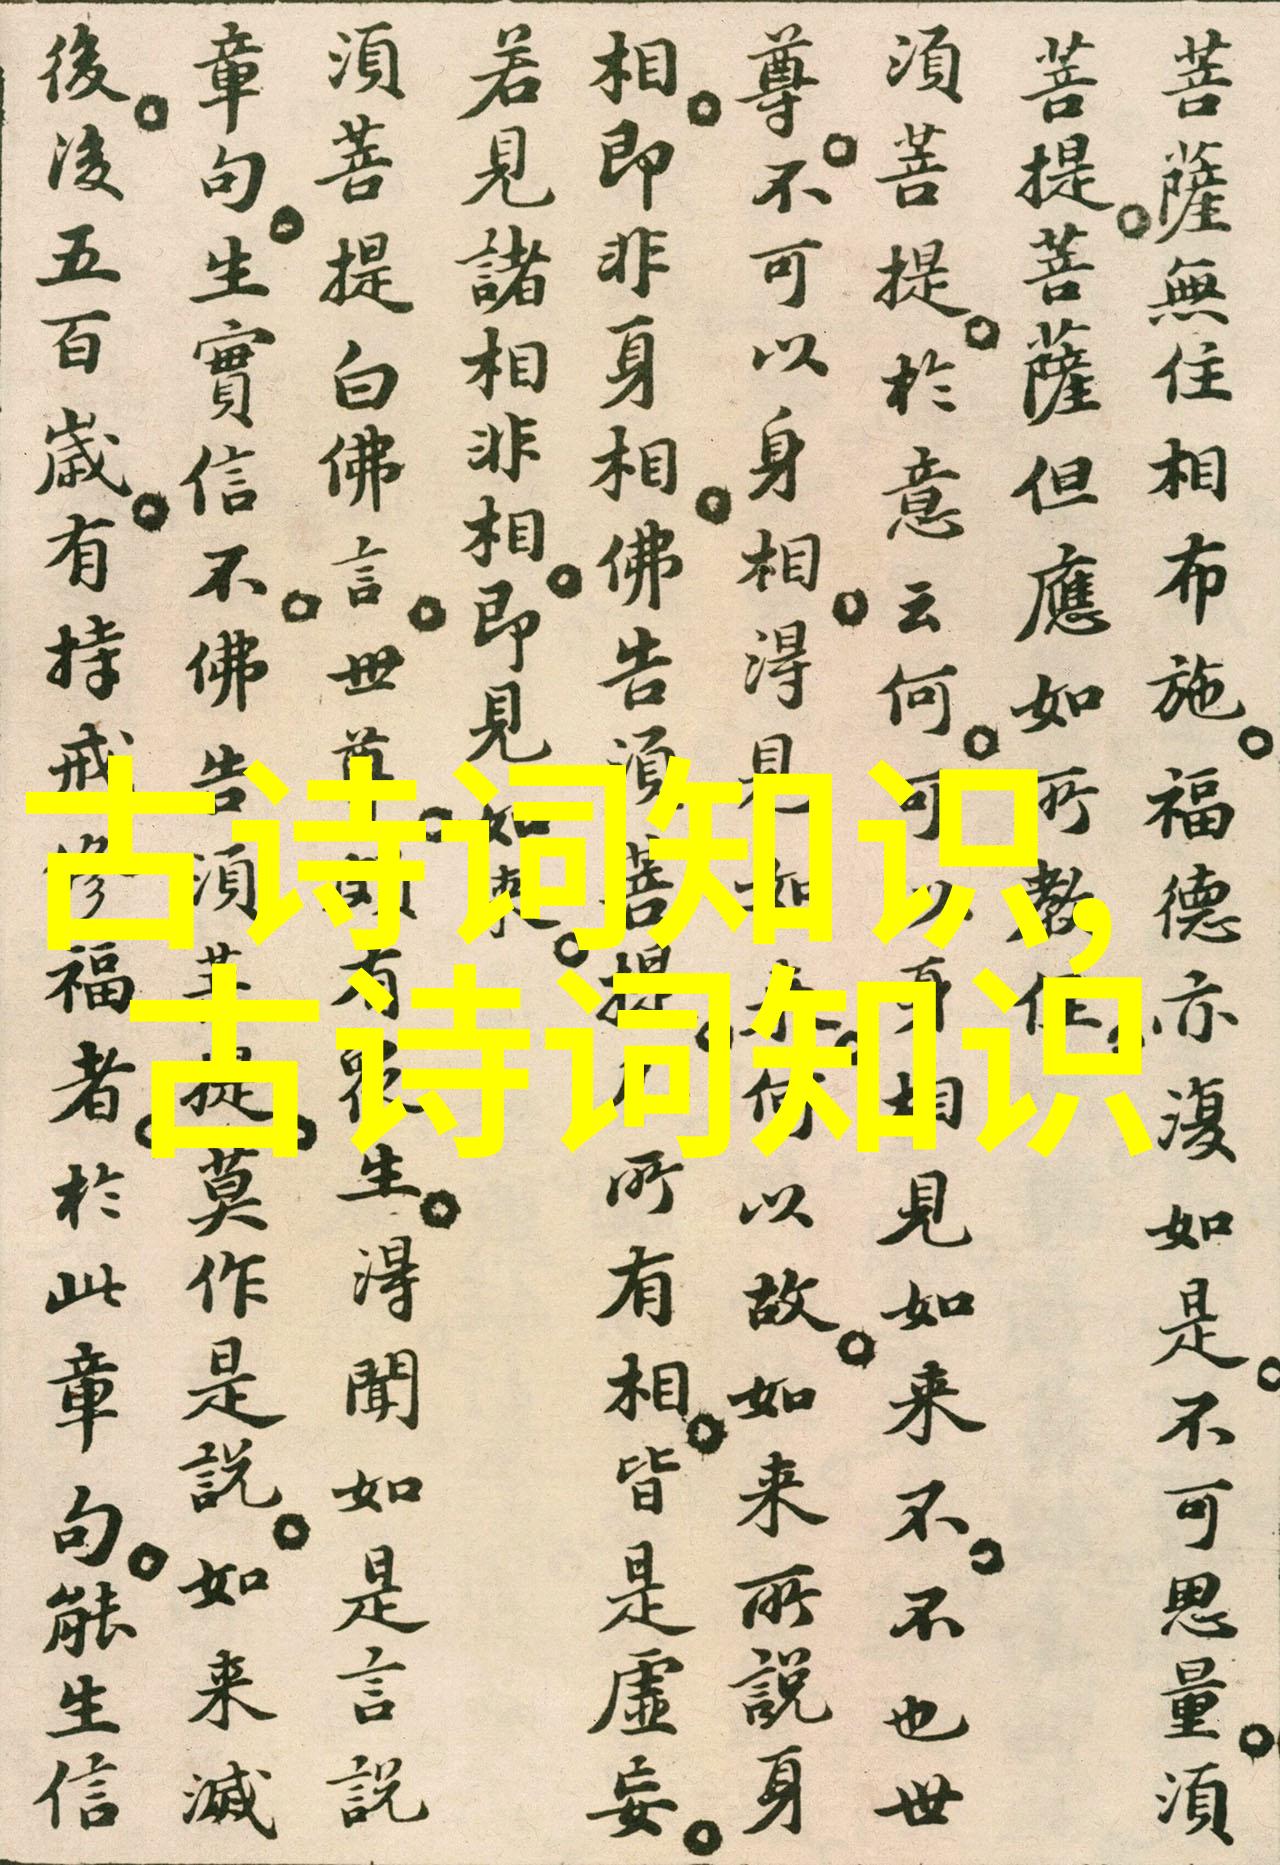 菩薩無住相布施。福德亦復如是。不可思量。須
菩提。菩薩但應如所教住。
須菩提。於意云何。可以身相見如来不。不也世
尊。不可以身相。得見如来。何以故。如来所說身
相。即非身相。佛告須菩提。凡所有相。皆是虛妄。
若見諸相非相。即見如来。
須菩提白佛言。世尊。頗有衆生。得聞如是言說
章句。生實信不。佛告須菩提。莫作是說。如来滅
後。後五百歲。有持戒修福者。於此章句。能生信
古诗词知识,
古诗词知识